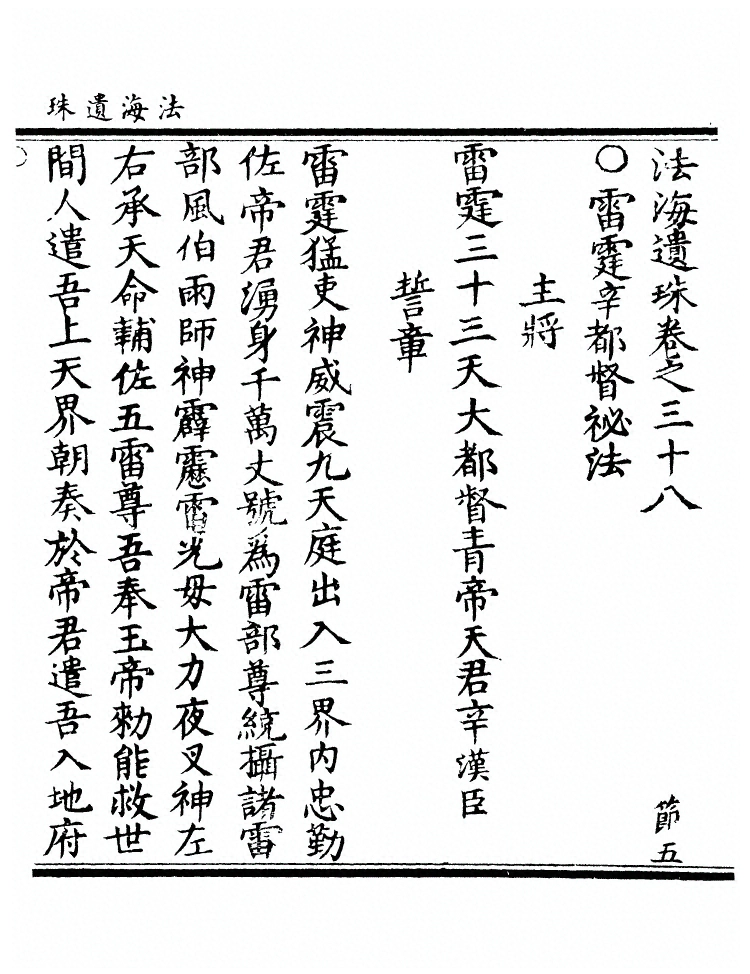 法海遺珠
法海遺珠卷之三十八
節五
○雷霆辛都督祕法
主將
雷霆三十三天大都督青帝天君辛漢臣
誓章
雷霆猛吏神威震九天庭出入三界內忠勤
佐帝君湧身千萬丈號為雷部尊統攝諸雷
部風伯雨師神霹靂電光母大力夜叉神左
右承天命輔佐五雷尊吾奉玉帝勑能救世
間人遣吾上天界朝奏於帝君遣吾入地府